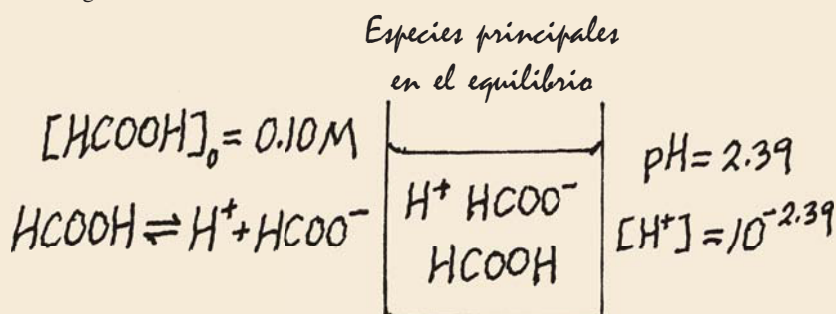 Especies principales
en el equilibrio
[HCOOH]₀ = 0.10 M
HCOOH ⇌ H⁺ + HCOO⁻
H⁺ HCOO⁻
HCOOH
pH = 2.39
[H⁺] = 10⁻²·³⁹